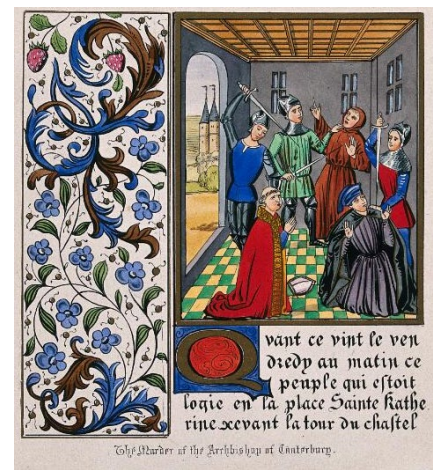 Qvant ce vint le ven
dredy au matin ce
peuple qui estoit
logie en la place Sainte Kathe
rine xevant la tour du chastel
The Murder of the Archbishop of Canterbury.